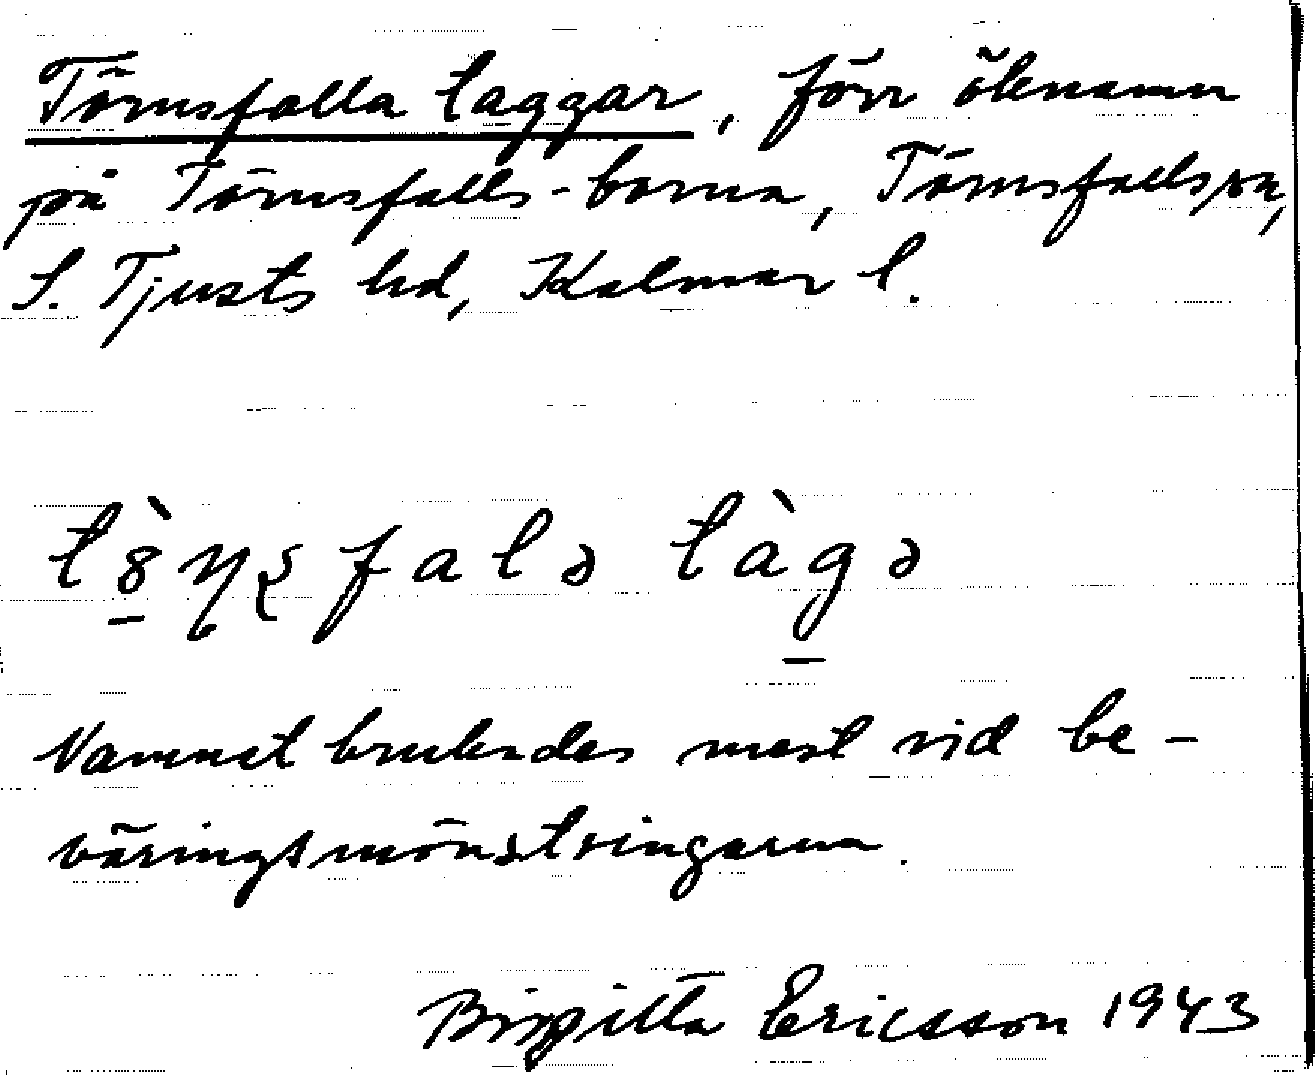 Törnsfalla taggar, förr öknamn
på Törnsfalls-borna, Törnsfalls sn,
S. Tjusts hd, Kalmar l.
tə̀ɳʂfalə tàgə
Namnet brukades mest vid be-
väringsmönstringarna.
Birgitta Ericsson 1943